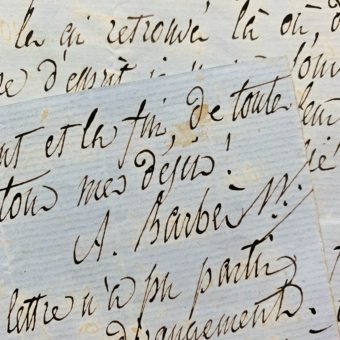 la qi retrouvé là où, d
re d'esprit
nt et la fin, de toute
tous mes désirs!
A. Barbè
lettre n'a pu partir,
dérangement.